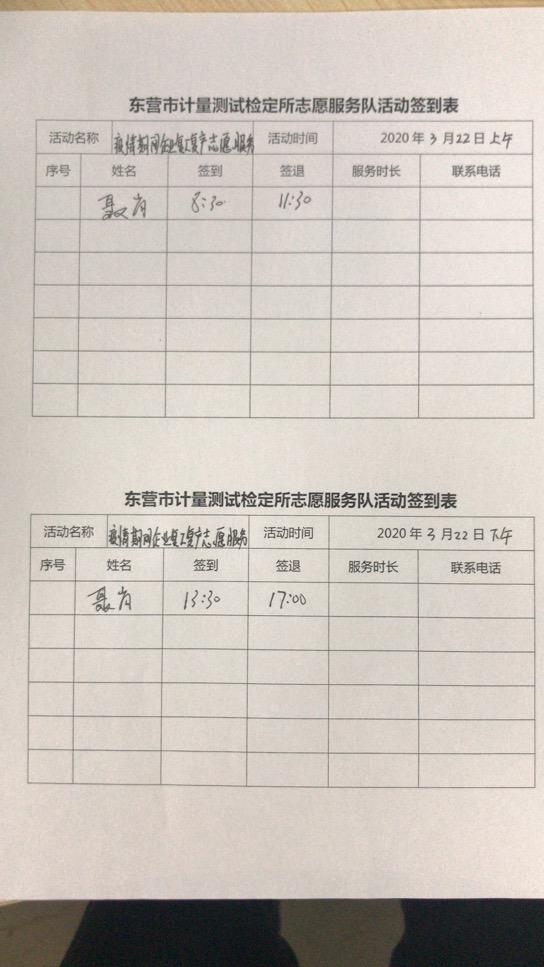 东营市计量测试检定所志愿服务队活动签到表
活动名称 疫情期间企业复工复产志愿服务 活动时间 2020年3月22日上午
序号 姓名 签到 签退 服务时长 联系电话
聂肖 8:30 11:30
东营市计量测试检定所志愿服务队活动签到表
活动名称 疫情期间企业复工复产志愿服务 活动时间 2020年3月22日下午
序号 姓名 签到 签退 服务时长 联系电话
聂肖 13:30 17:00